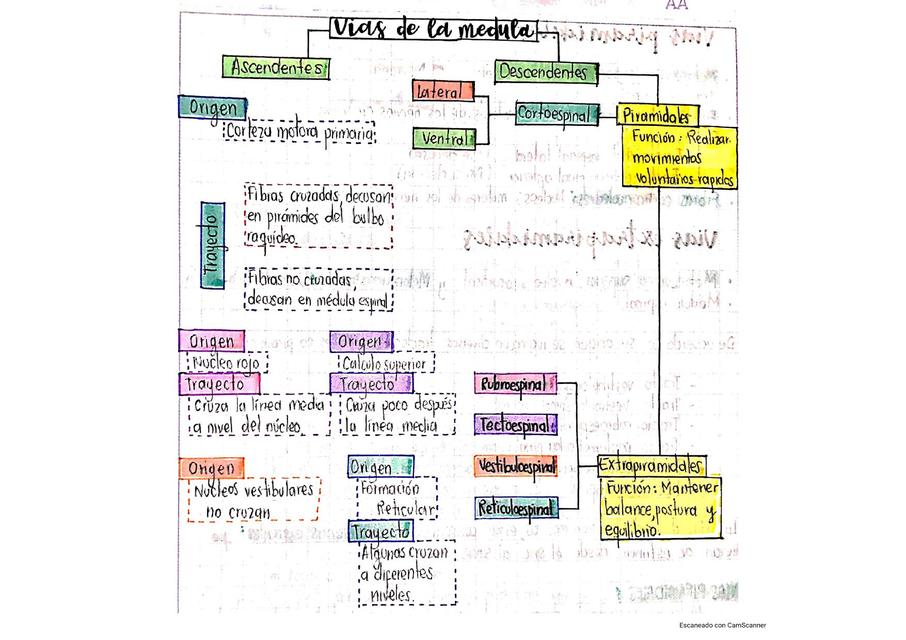 AA
Vias de la medula
Ascendentes
Descendentes
Lateral
Origen
Cortoespinal
Piramidales
Corteza motora primaria
Ventral
Función: Realizar
movimientos
voluntarios rapidos
Fibras cruzadas, decusan
en pirámides del bulbo
raquídeo.
Trayecto
Fibras no cruzadas,
decusan en médula espinal
Vias extrapiramidales
Origen
Núcleo rojo
Trayecto
Cruza la línea media
a nivel del núcleo.
Origen
Calculo superior
Trayecto
Cruza poco después
la línea media
Rubroespinal
Tectoespinal
Vestibuloespinal
Reticuloespinal
Extrapiramidales
Función: Mantener
balance, postura y
equilibrio.
Origen
Núcleos vestibulares
no cruzan
Origen
Formación
Reticular
Trayecto
Algunas cruzan
a diferentes
niveles.
Escaneado con CamScanner